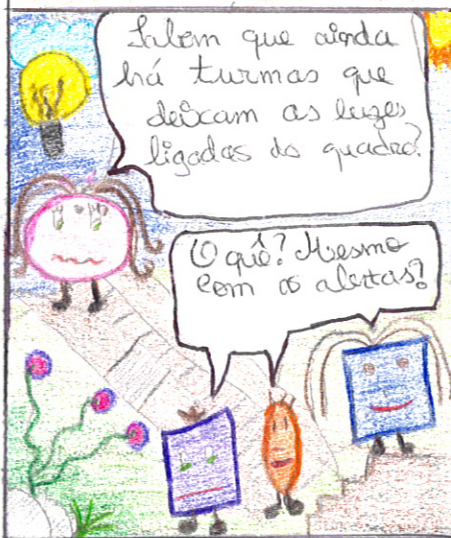 Sabem que ainda
há turmas que
deixam as luzes
ligadas do quadro?
O quê? Mesmo
com os alertas?